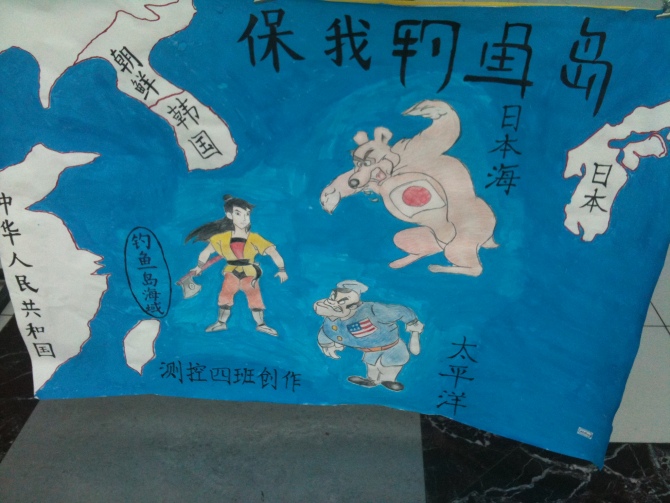 保我钓鱼岛
朝鲜
韩国
日本海
日本
中华人民共和国
钓鱼岛海域
太平洋
测控四班创作